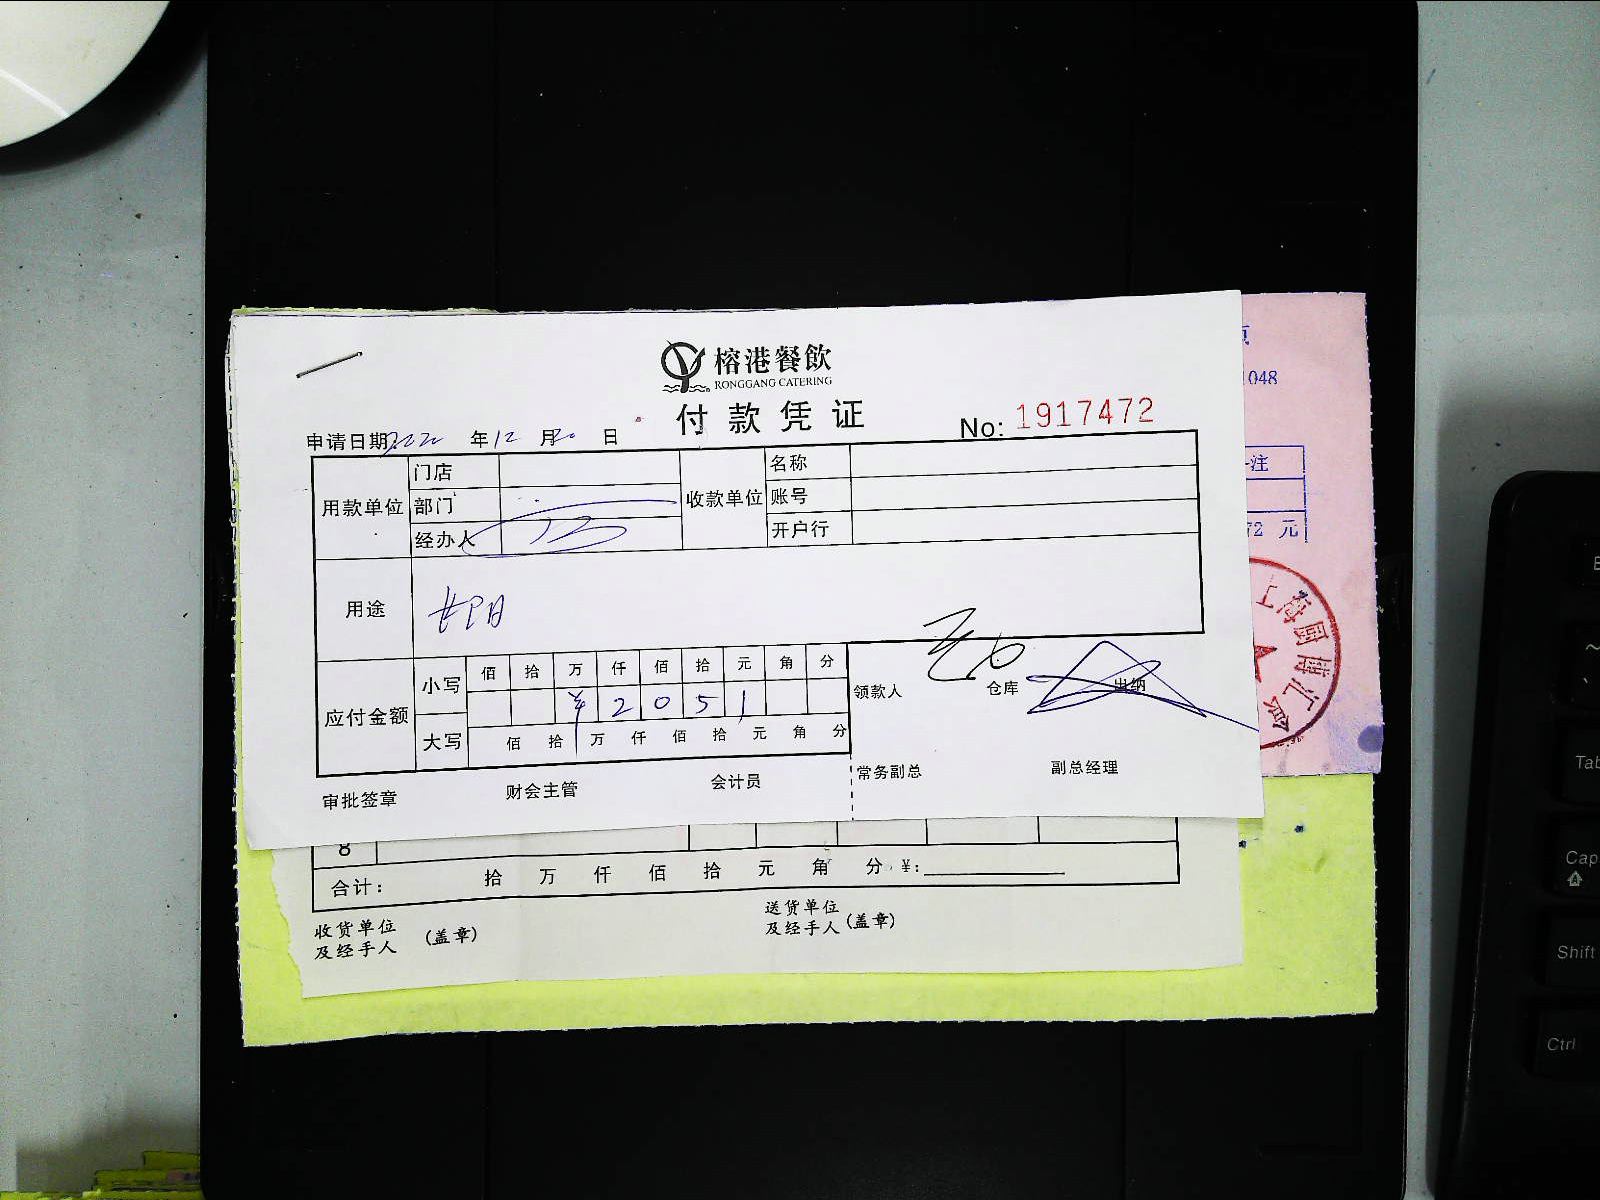 榕港餐飲
RONGGANG CATERING
付款凭证
No: 1917472
申请日期 2022 年 12 月 20 日
用款单位
门店
部门
经办人
收款单位
名称
账号
开户行
用途
应付金额
小写
佰 拾 万 仟 佰 拾 元 角 分
¥ 2 0 5 1
大写
佰 拾 万 仟 佰 拾 元 角 分
领款人
仓库
出纳
审批签章
财会主管
会计员
常务副总
副总经理
1048
注
72 元
上海
8
合计: 拾 万 仟 佰 拾 元 角 分 ¥:
收货单位
及经手人 (盖章)
送货单位
及经手人 (盖章)
Tab
Cap
Shift
Ctrl